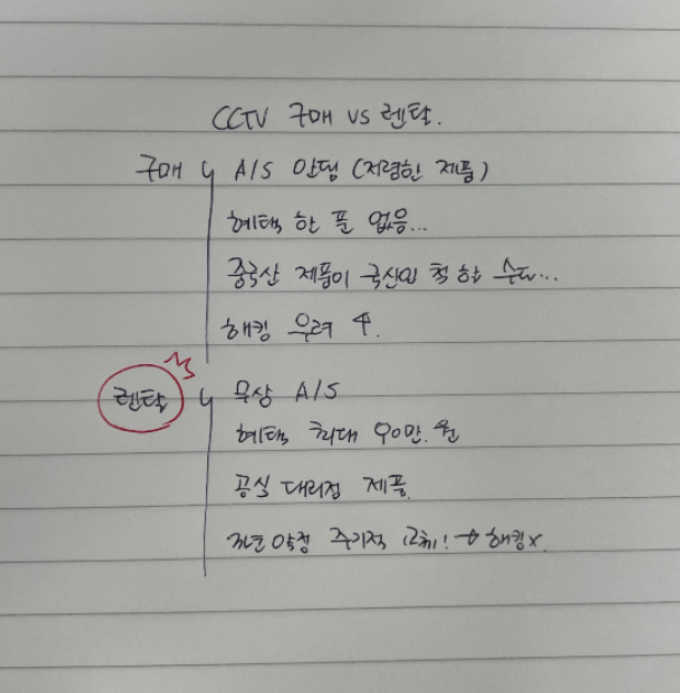 CCTV 구매 VS 렌탈.
구매 ↳ A/S 안됨 (저렴한 제품)
혜택 한 푼 없음...
중국산 제품이 국산인 척 할 수도...
해킹 우려 ↑.
렌탈 ↳ 무상 A/S
혜택 최대 90만.원
공식 대리점 제품.
3년약정 주기적 교체! → 해킹x.